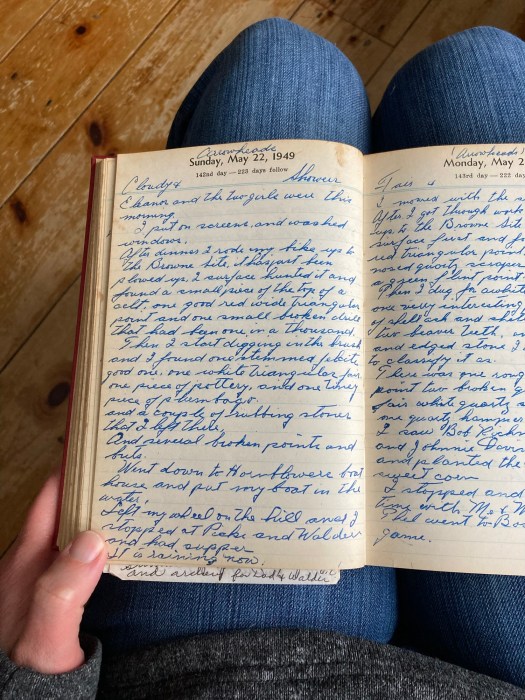 Arrowheads
Sunday, May 22, 1949
142nd day — 223 days follow
Cloudy & Shower
Eleanor and the two girls were this
morning.
I put on screens, and washed
windows.
After dinner I rode my bike up to
the Browne site, it has just been
plowed up, I surface hunted it and
found a small piece of the top of a
celt, one good red wide triangular
point and one small broken drill
that had been one in a thousand.
Then I start digging in the brush
and I found one stemmed point,
good one, one white triangular fair
one piece of pottery, and one tiney
piece of plumbago.
and a couple of rubbing stones
that I left there,
And several broken points and
buts.
Went down to Hornblowers boat
house and put my boat in the
water,
I left my wheel on the hill and I
stopped at Picks and Walder
and had supper
It is raining now.
and archent for Dad & Walder
(Arrowheads)
Monday, May 2
143rd day — 222 day
I mowed with the
After I got through work
up to the Browne site
surface first and
red triangular
nosed quartz
a green flint point
Then I dug for awhile
one very interesting
of shell ash and
two beaver teeth,
and edged stone I
to classify it as.
There was one roug
point two broken
fair white quartz
one quartz hammer
I saw Bob
and Johnnie
and planted the
sweet corn
I stopped and
time with Me &
Hel went to Bo
game.